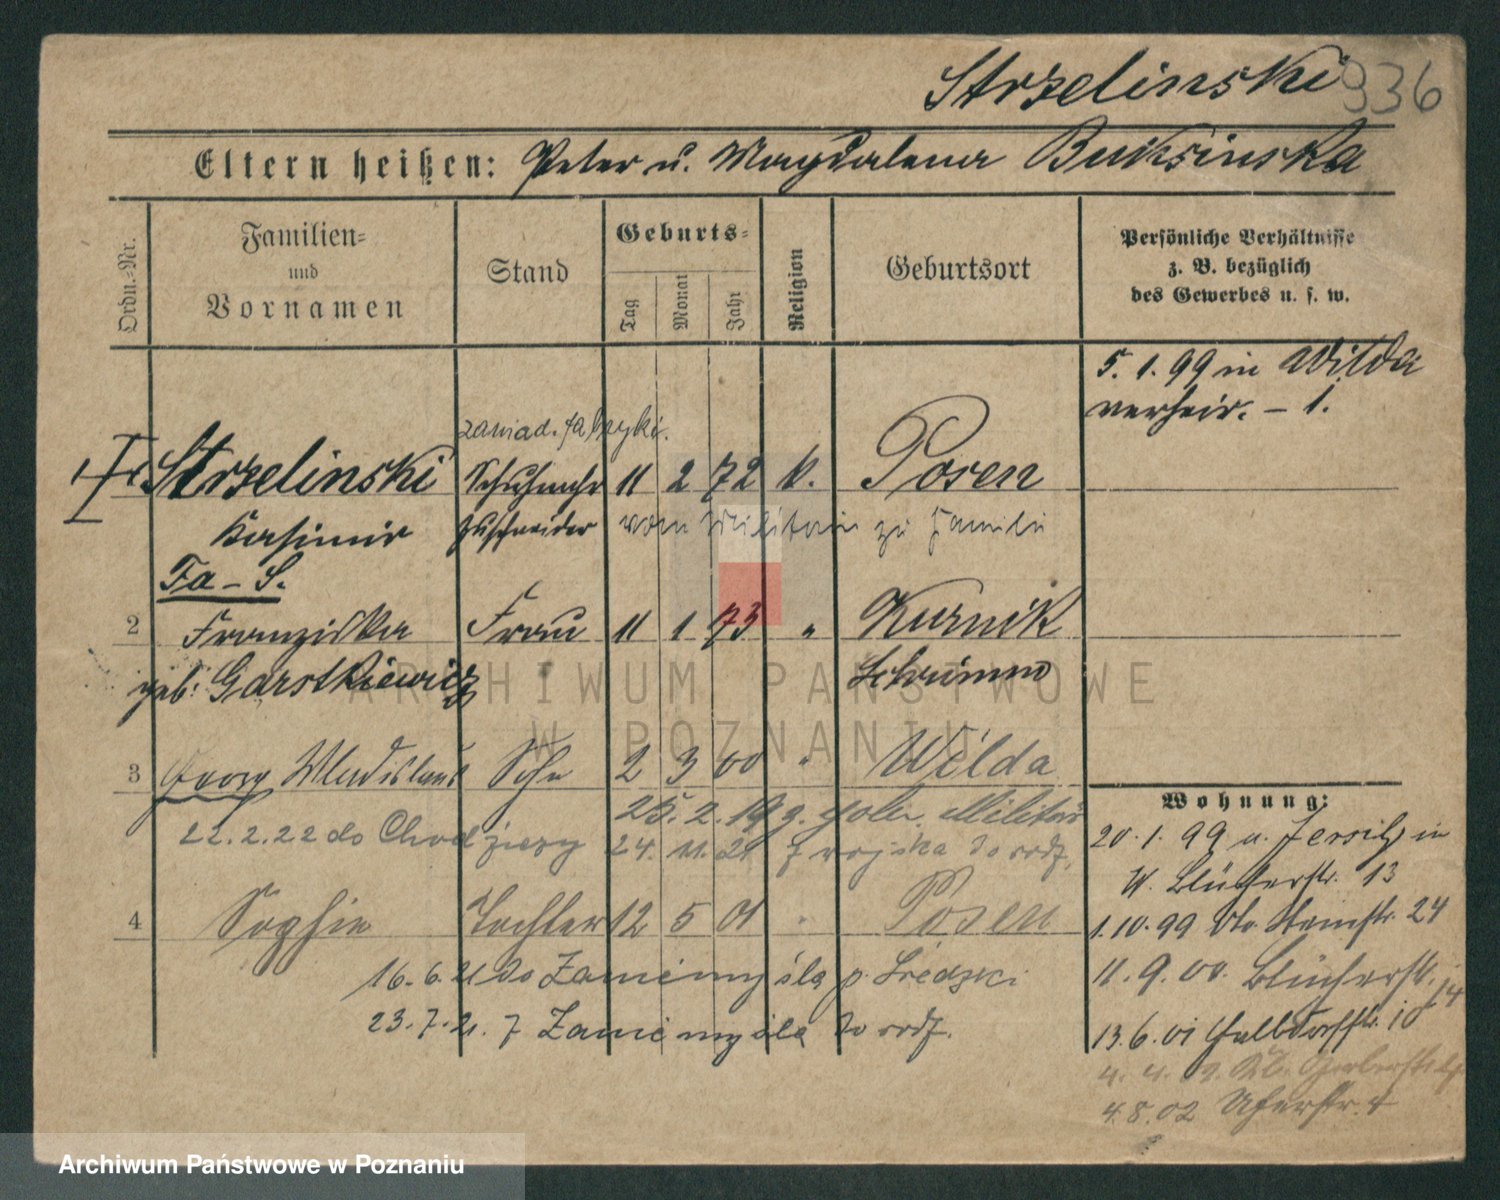 Strzelinski 936
Eltern heißen: Peter u. Magdalena Buksinska
Ordn.-Nr.
Familien- und Vornamen
Stand
Geburts-
Tag
Monat
Jahr
Religion
Geburtsort
Persönliche Verhältnisse
z. B. bezüglich
des Gewerbes u. s. w.
5. 1. 99 in Wilda
verheir. – 1.
zawiad. fabryki.
Strzelinski Schuhmchr 11 2 72 k. Posen
Kasimir Zuschneider vom Militair zu Familie
Fa – S.
2 Franziska Frau 11 1 73 " Kurnik
geb: Garstkiewicz Schrimm
3 Georg Wladislaus Sohn 2 3 00 " Wilda
25. 2. 19 z. poln. Militär
22.2.22 do Chodzieży 24. 11. 21 z wojska do rodz.
4 Sophie Tochter 12 5 01 " Posen
16. 6. 21 do Zaniemyśla p. Średzki
23. 7. 21. z Zaniemyśla do rodz.
Wohnung:
20. 1. 99 a. Jersitz in
W. Blücherstr. 13
1. 10. 99 24
11. 9. 00. Blücherstr. 14
13. 6. 01 10
4. 8. 02 Uferstr. 4
ARCHIWUM PAŃSTWOWE
W POZNANIU
Archiwum Państwowe w Poznaniu